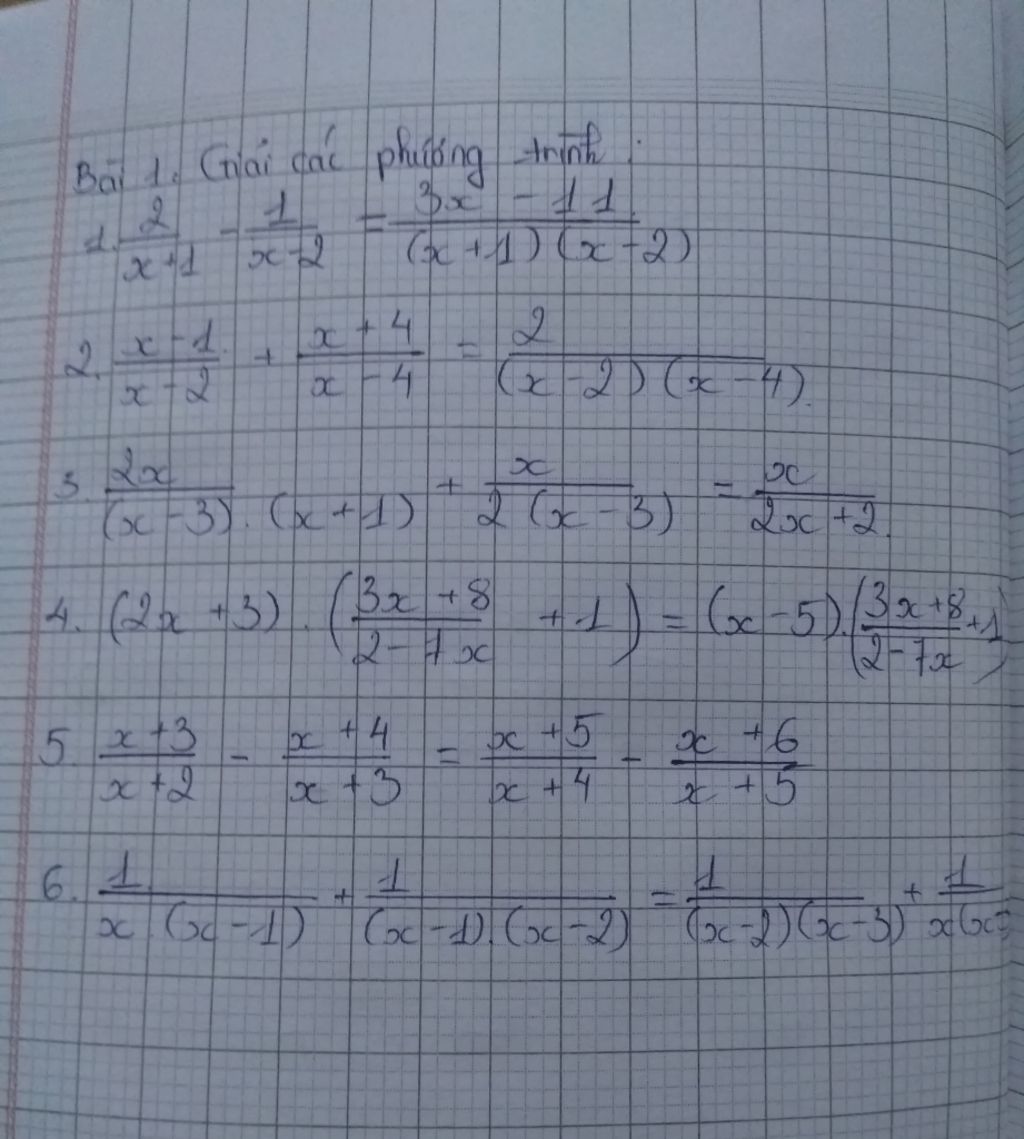 Bài 1. Giải các phương trình :
1. 2/(x+1) - 1/(x-2) = (3x - 11)/((x+1)(x-2))
2. (x-1)/(x-2) + (x+4)/(x-4) = 2/((x-2)(x-4)).
3. 2x/((x-3).(x+1)) + x/(2(x-3)) = x/(2x+2).
4. (2x+3).((3x+8)/(2-7x) + 1) = (x-5).((3x+8)/(2-7x) + 1)
5 (x+3)/(x+2) - (x+4)/(x+3) = (x+5)/(x+4) - (x+6)/(x+5)
6. 1/(x.(x-1)) + 1/((x-1).(x-2)) = 1/((x-2)(x-3)) + 1/(x(x-